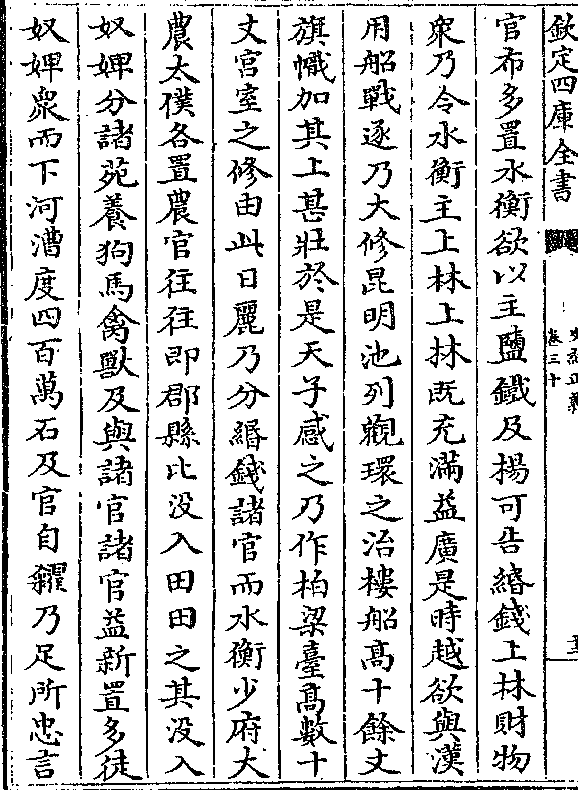 欽定四庫全書
史記正義
卷三十
官布多置水衡欲以主鹽鐵及揚可告緡錢上林財物
衆乃令水衡主上林上林既充滿益廣是時越欲與漢
用船戰逐乃大修昆明池列觀環之治樓船髙十餘丈
旗幟加其上甚壯於是天子感之乃作柏梁臺髙數十
丈宫室之修由此日麗乃分緡錢諸官而水衡少府大
農太僕各置農官往往即郡縣比没入田田之其没入
奴婢分諸苑養狗馬禽獸及與諸官諸官益新置多徒
奴婢衆而下河漕度四百萬石及官自糴乃足所忠言